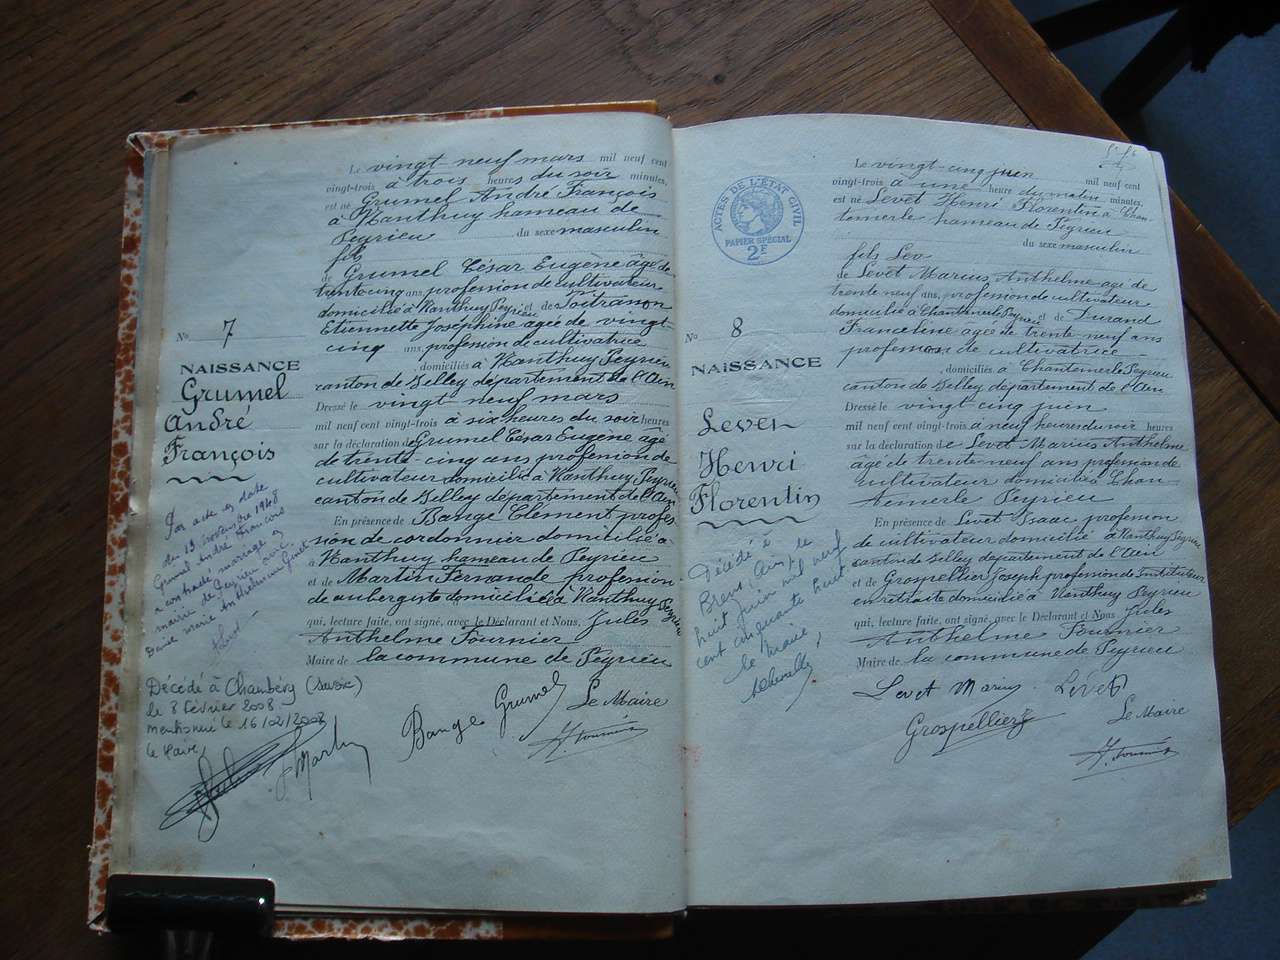 Le vingt-neuf mars mil neuf cent
vingt-trois à trois heures du soir minutes,
est né Grumel André François
à Nanthuy hameau de
Peyrieu du sexe masculin
fils
de Grumel César Eugène âgé de
trente cinq ans, profession de cultivateur
domicilié à Nanthuy Peyrieu et de Poitrason
Etiennette Joséphine agée de vingt-
cinq ans, profession de cultivatrice
, domiciliés à Nanthuy Peyrieu
canton de Belley département de l'Ain
Dressé le vingt neuf mars
mil neuf cent vingt-trois à six heures du soir heures
sur la déclaration de Grumel César Eugène âgé
de trente-cinq ans profession de
cultivateur domicilié à Nanthuy Peyrieu
canton de Belley département de l'Ain
En présence de Bange Clément profes
sion de cordonnier domicilié à
Nanthuy hameau de Peyrieu
et de Martin Fernande profession
de aubergiste domiciliée à Nanthuy Peyrieu
qui, lecture faite, ont signé, avec le Déclarant et Nous, Jules
Anthelme Fournier
Maire de la commune de Peyrieu
Bange Grumel Le Maire
J. Fournier
Martin
No 7
NAISSANCE
Grumel
André
François
Par acte en date
du 13 novembre 1948
Grumel André François
a contracté mariage en
mairie de Peyrieu avec
Marie
Décédé à Chambéry (Savoie)
le 8 Février 2008
mentionné le 16/02/2008
le Maire
ACTES DE L'ÉTAT CIVIL
PAPIER SPÉCIAL
2F
No 8
NAISSANCE
Levet
Henri
Florentin
Décédé à
Brens, Ain, le
huit juin mil neuf
cent cinquante huit
le maire,
Le vingt-cinq juin mil neuf cent
vingt-trois à une heure du matin minutes,
est né Levet Henri Florentin à Chan-
temerle hameau de Peyrieu
du sexe masculin
fils Lev
de Levet Marius Anthelme âgé de
trente neuf ans, profession de cultivateur
domicilié à Chantemerle Peyrieu et de Durand
Franceline agée de trente neuf ans
profession de cultivatrice
, domiciliés à Chantemerle Peyrieu
canton de Belley département de l'Ain
Dressé le vingt cinq juin
mil neuf cent vingt-trois à neuf heures du soir heures
sur la déclaration de Levet Marius Anthelme
âgé de trente-neuf ans profession de
cultivateur domicilié à Chan
temerle Peyrieu
En présence de Levet Isaac profession
de cultivateur domicilié à Nanthuy Peyrieu
canton de Belley département de l'Ain
et de Grospellier Joseph profession de Instituteur
en retraite domicilié à Nanthuy Peyrieu
qui, lecture faite, ont signé, avec le Déclarant et Nous, Jules
Anthelme Fournier
Maire de la commune de Peyrieu
Levet Marius Levet
Grospellier Le Maire
J. Fournier